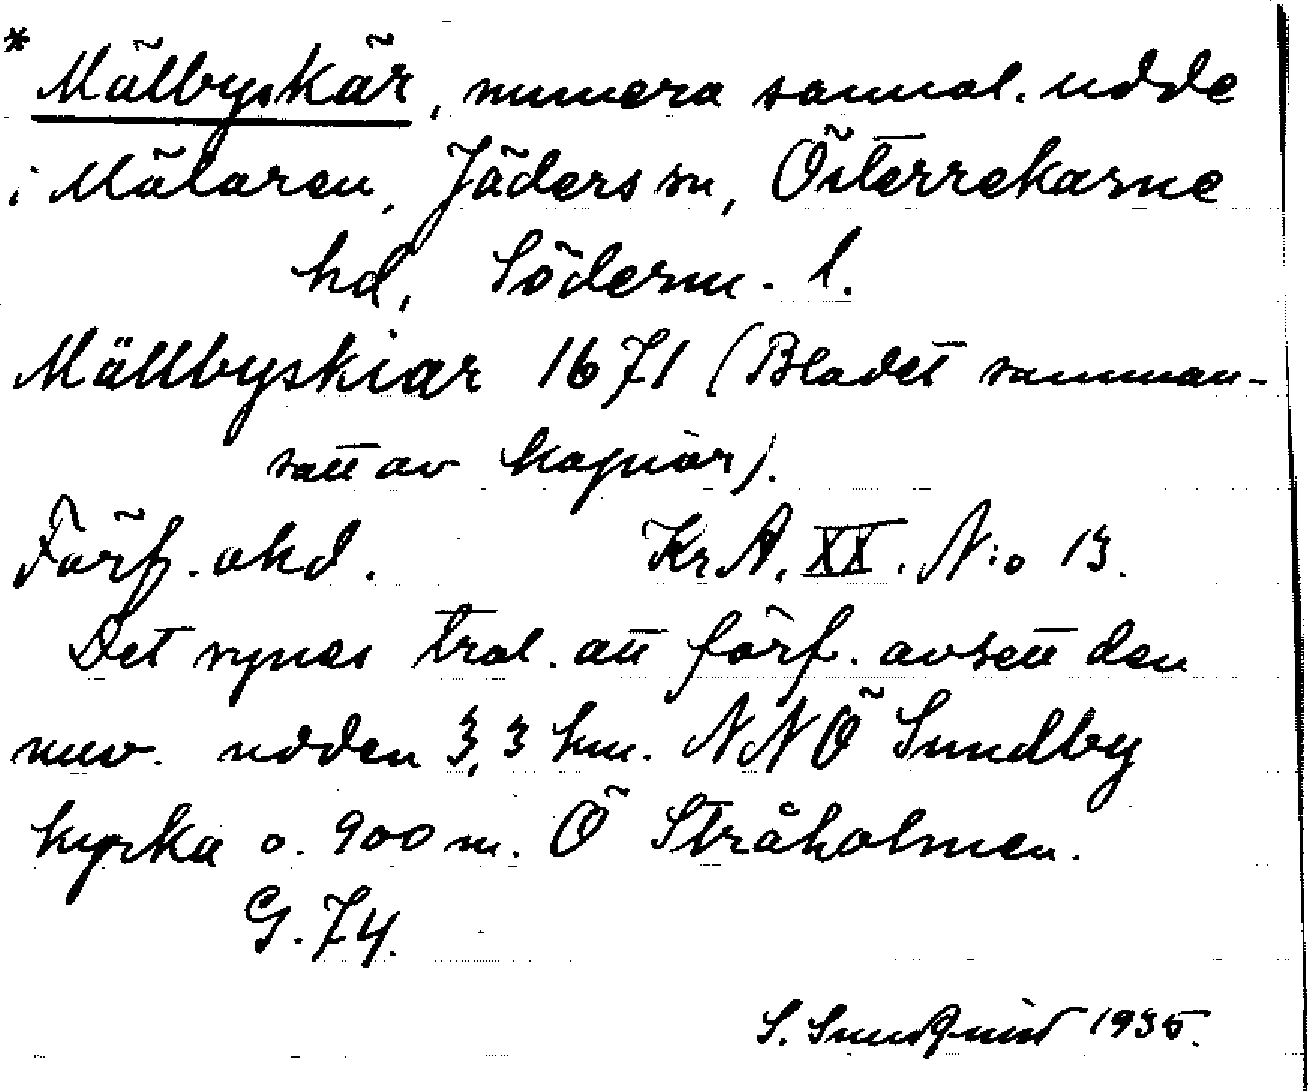 * Mälbyskär, numera sannol. udde
i Mälaren, Jäders sn, Österrekarne
hd, Söderm. l.
Mällbyskiär 1671 (Bladet samman-
satt av kopior).
Förf. okd. Kr. A. XX. N:o 13.
Det synes trol. att förf. avsett den
nuv. udden 3,3 km. NNÖ Sundby
kyrka o. 900 m. Ö Stråholmen.
G. 74.
S. Sundquist 1935.